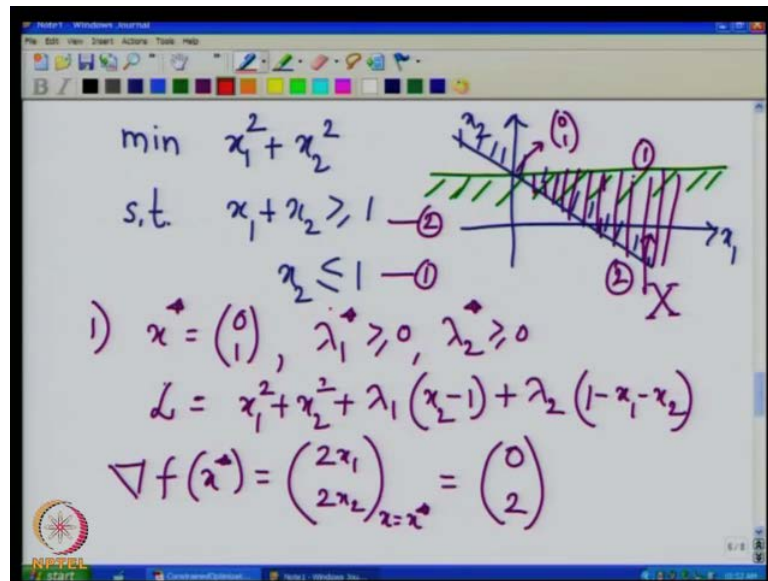 Note1 - Windows Journal
File Edit View Insert Actions Tools Help
B I
min x₁² + x₂²
s.t. x₁ + x₂ ≥ 1 —②
x₂ ≤ 1 —①
x₂
(0 1)
①
x₁
②
X
1) x* = (0 1), λ₁* ≥ 0, λ₂* ≥ 0
ℒ = x₁² + x₂² + λ₁(x₂-1) + λ₂(1-x₁-x₂)
∇f(x*) = (2x₁ 2x₂)ₓ₌ₓ* = (0 2)
NPTEL
start
Note1 - Windows Jou...